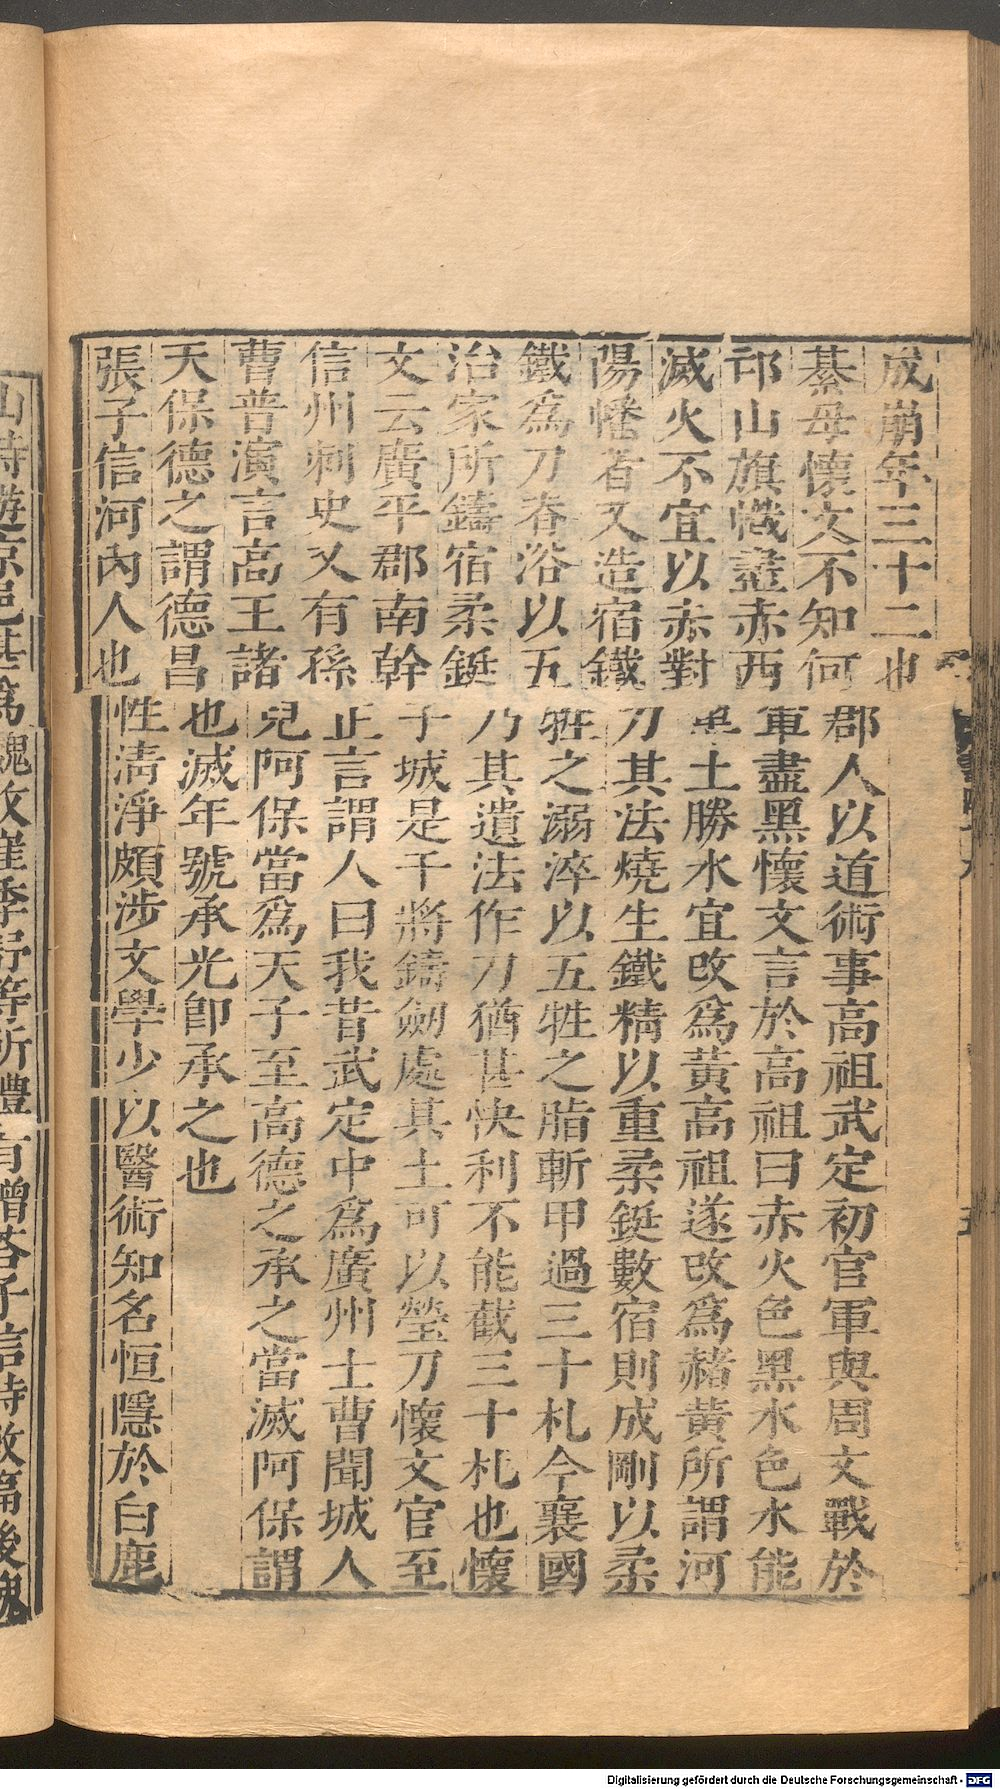 成崩年三十二也
綦母懷文不知何郡人以道術事高祖武定初官軍與周文戰於
邙山旗幟盡赤西軍盡黑懷文言於高祖曰赤火色黑水色水能
滅火不宜以赤對黑土勝水宜改爲黃高祖遂改爲赭黃所謂河
陽幡者又造宿鐵刀其法燒生鐵精以重柔鋌數宿則成剛以柔
鐵爲刀脊浴以五牲之溺淬以五牲之脂斬甲過三十札今襄國
治家所鑄宿柔鋌乃其遺法作刀猶甚快利不能截三十札也懷
文云廣平郡南幹子城是干將鑄劒處其土可以瑩刀懷文官至
信州刺史又有孫正言謂人曰我昔武定中爲廣州士曹聞城人
曹普演言高王諸兒阿保當爲天子至高德之承之當滅阿保謂
天保德之謂德昌也滅年號承光卽承之也
張子信河內人也性淸淨頗涉文學少以醫術知名恒隱於白鹿
山時遊京邑甚爲魏收崔季舒等所禮有贈荅子信詩數篇後魏
Digitalisierung gefördert durch die Deutsche Forschungsgemeinschaft - DFG